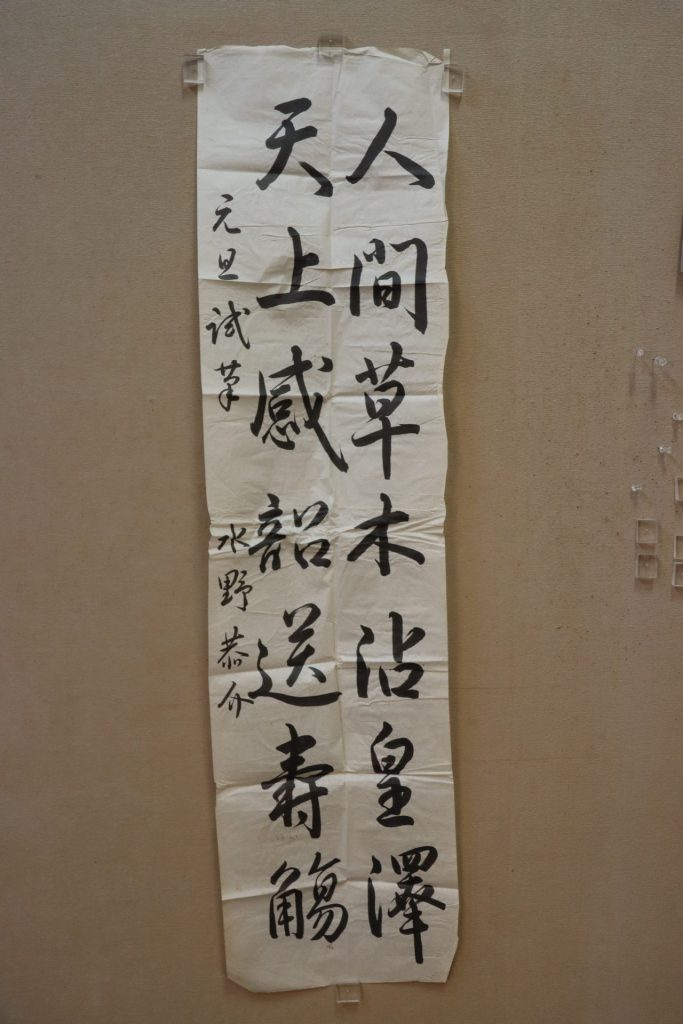 人間草木沾皇澤
天上感韶送壽觴
元旦試筆 水野恭介